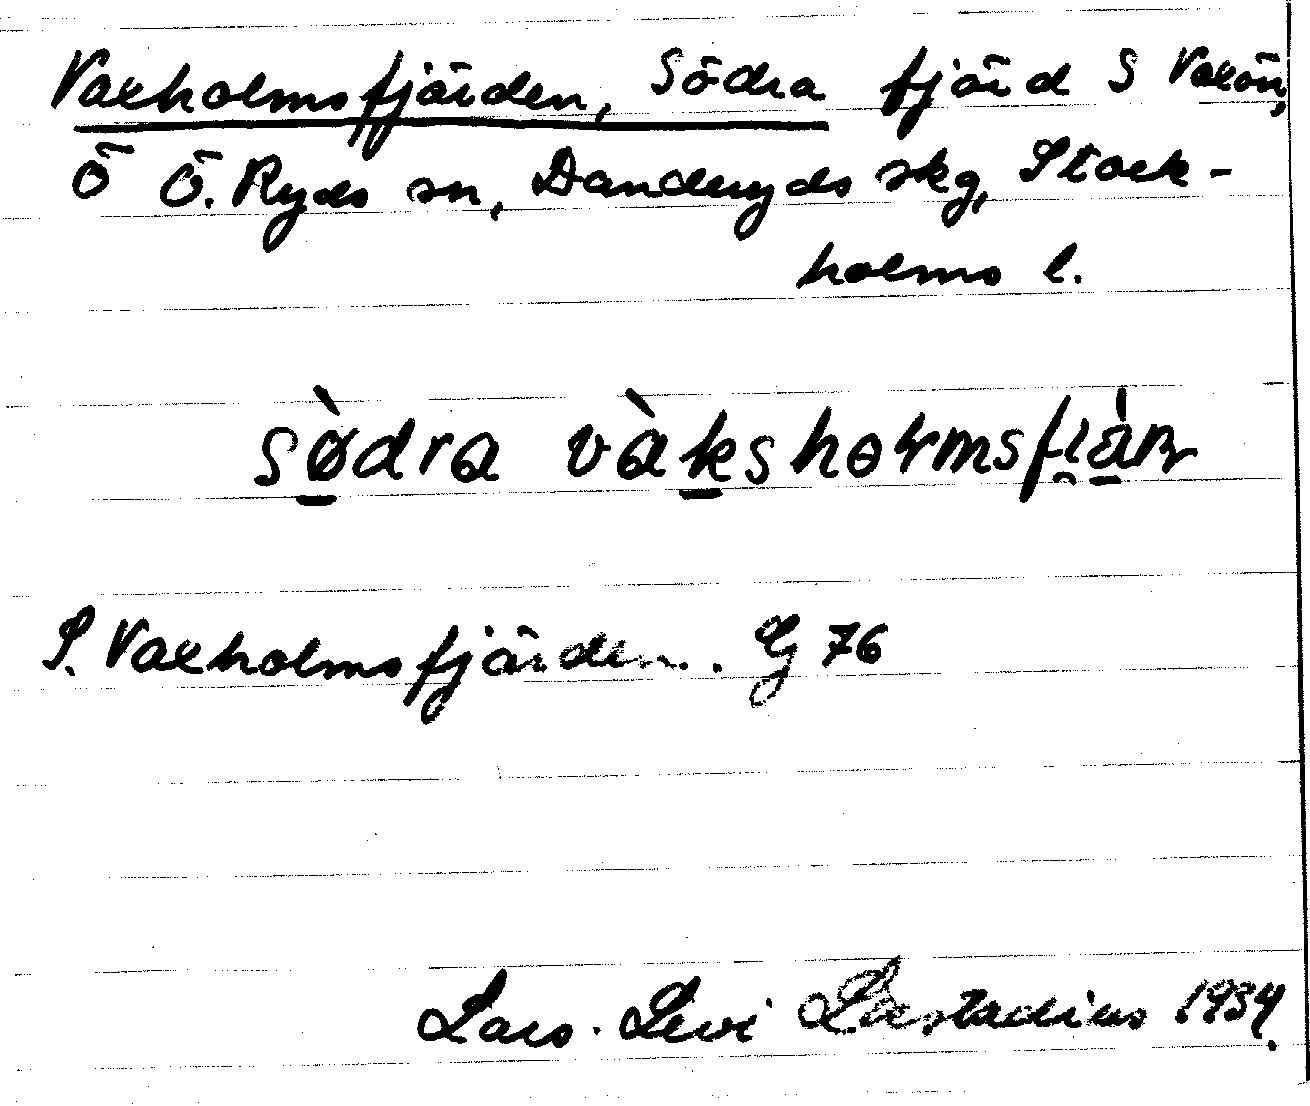 Vaxholmsfjärden, Södra fjärd S Vaxön,
Ö Ö. Ryds sn, Danderyds skg, Stock-
holms l.
sø̀dra vàksholmsfi̯à̱n
S. Vaxholmsfjärden.. G 76
Lars-Levi Læstadius 1934.